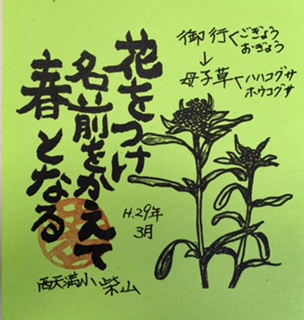 花をつけ
名前をかえて
春となる
御行くごぎょう
おぎょう
↓
母子草くハハコグサ
ホウコグサ
H.29年
3月
西天満小 柴山